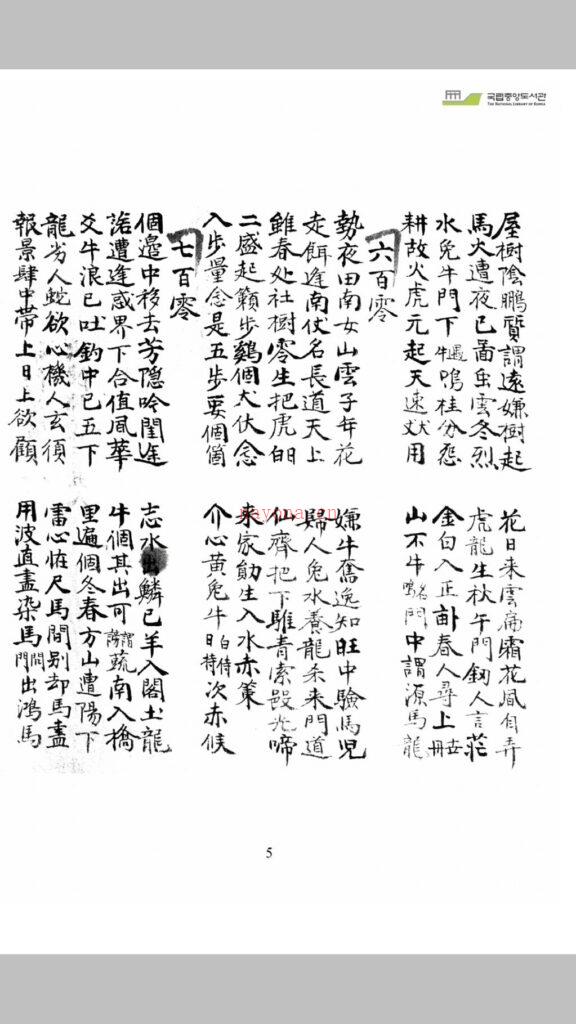 국립중앙도서관
THE NATIONAL LIBRARY OF KOREA
屋樹陰鵬質謂遠嫌樹起
馬火遭夜已啚虫雲冬烈
水免牛門下 鳴桂分怨
耕故火虎元起天速 用
六百零
勢夜田南女山雲子年花
走餌逢南伏名長道天上
雖春处社樹零生把虎
二盛起籟步鷄個犬伏念
入步量念是五步要個箇
七百零
個邊中移去芳隐吟閏逢
詣遭逢惑界下合值風華
爻牛浪已吐釣中已五下
龍劣人蛇欲心機人玄須
報景肆中带上日上欲顧
花日来雲 霜花風自弄
虎龍生秋午門 人言莊
金白入正 春人尋上
山不牛 門中謂源馬龍
嫌牛奮逸知旺中驗馬児
婦人兔水養龍 来門道
仙齊把下騅青索 啼
来家 生入水赤策
介心黄兔牛日 次赤候
志水出鱗已羊入閣土龍
牛個其出可 蔬南入橋
里遍個冬春方山遭陽下
雷心 尺馬間别却馬盡
用波直盡染馬 出鴻馬
nayona.cn
5